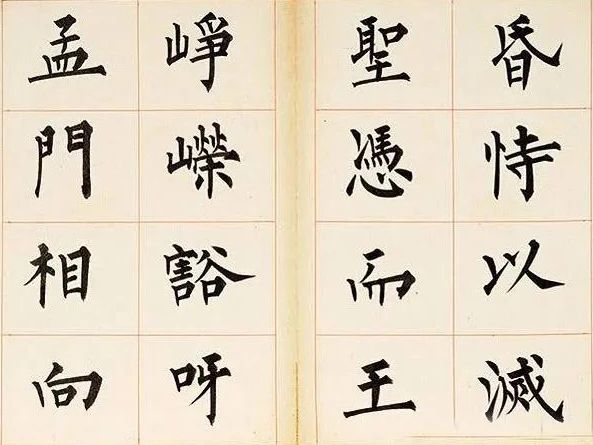 昏恃以滅
聖憑而王
崢嶸豁呀
孟門相向